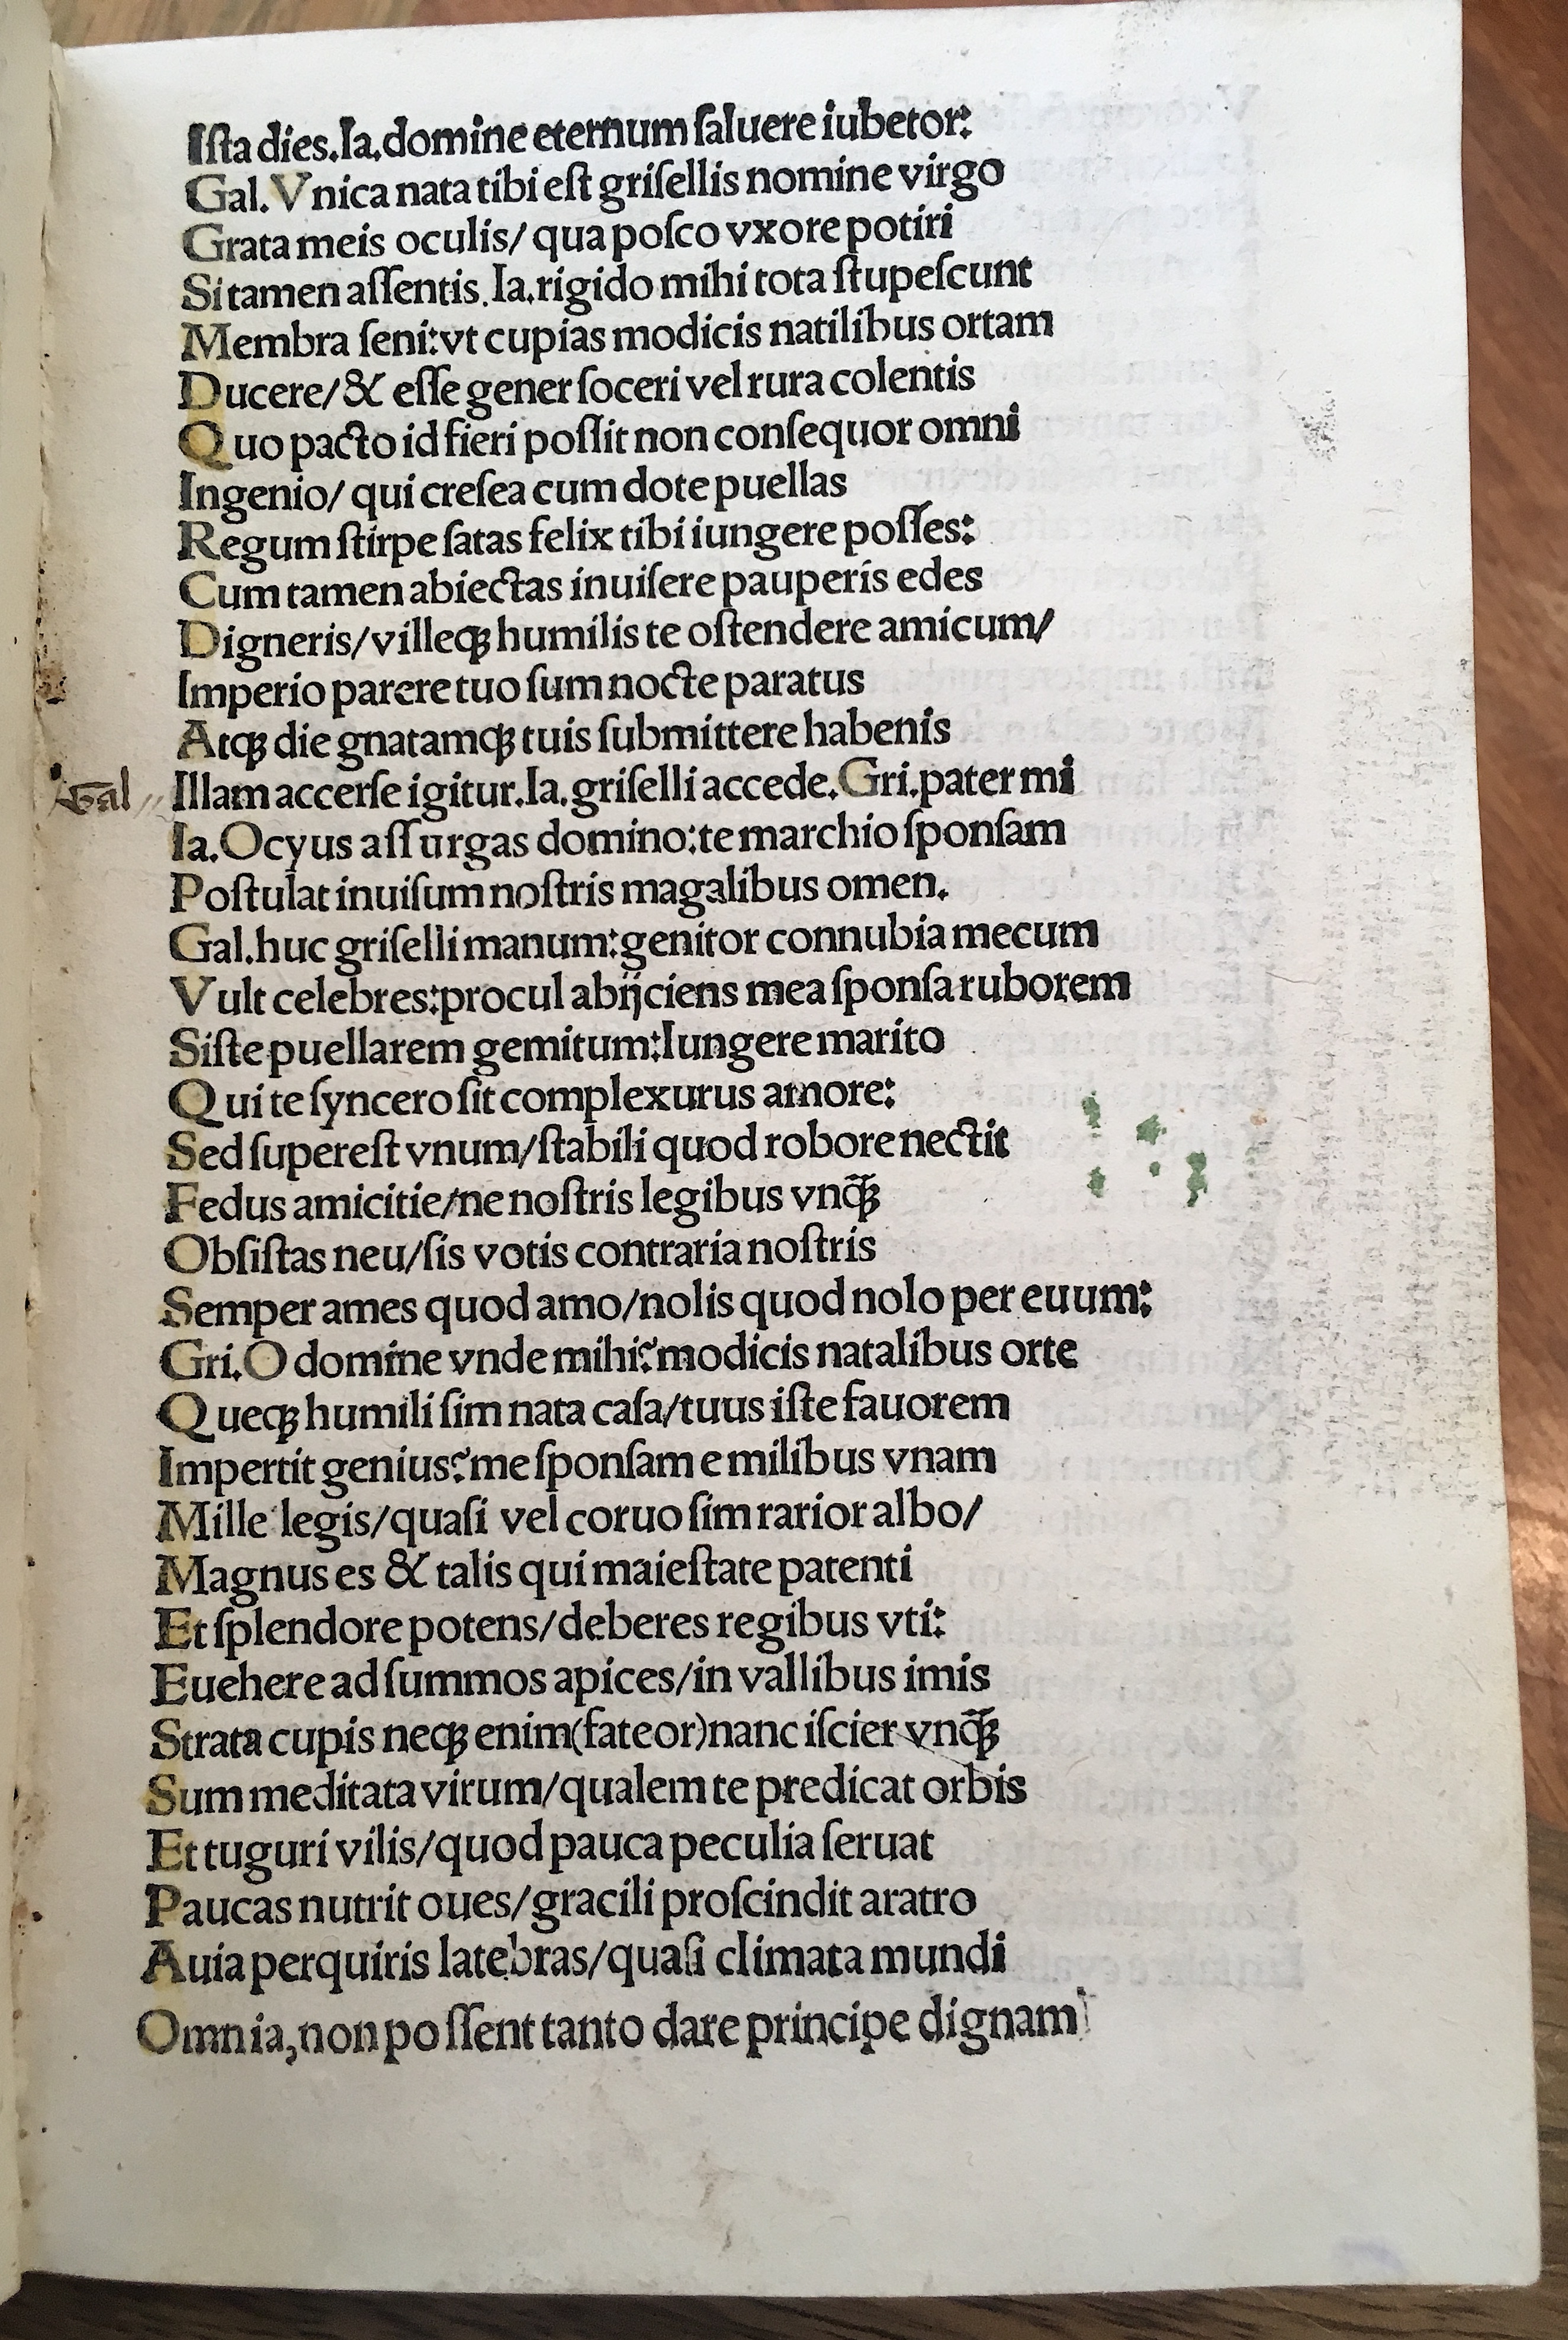 Iſta dies.Ia.domine eternum ſaluere iubetor:
Gal.Vnica nata tibi eſt griſellis nomine virgo
Grata meis oculis/ qua poſco vxore potiri
Si tamen aſſentis.Ia.rigido mihi tota ſtupeſcunt
Membra ſeni:vt cupias modicis natilibus ortam
Ducere/& eſſe gener ſoceri vel rura colentis
Quo pacto id fieri poſſit non conſequor omni
Ingenio/ qui creſea cum dote puellas
Regum ſtirpe ſatas felix tibi iungere poſſes:
Cum tamen abiectas inuiſere pauperis edes
Digneris/villeqꝫ humilis te oſtendere amicum/
Imperio parere tuo ſum nocte paratus
Atqꝫ die gnatamqꝫ tuis ſubmittere habenis
Gal Illam accerſe igitur.Ia.griſelli accede.Gri.pater mi
Ia.Ocyus aſſurgas domino:te marchio ſponſam
Poſtulat inuiſum noſtris magalibus omen.
Gal.huc griſelli manum:genitor connubia mecum
Vult celebres:procul abijciens mea ſponſa ruborem
Siſte puellarem gemitum:Iungere marito
Qui te ſyncero ſit complexurus amore:
Sed ſupereſt vnum/ſtabili quod robore nectit
Fedus amicitie/ne noſtris legibus vnq̄ꝫ
Obſiſtas neu/ſis votis contraria noſtris
Semper ames quod amo/nolis quod nolo per euum:
Gri.O domine vnde mihi?modicis natalibus orte
Queqꝫ humili ſim nata caſa/tuus iſte fauorem
Impertit genius?me ſponſam e milibus vnam
Mille legis/quaſi vel coruo ſim rarior albo/
Magnus es & talis qui maieſtate patenti
Et ſplendore potens/deberes regibus vti:
Euehere ad ſummos apices/in vallibus imis
Strata cupis neqꝫ enim(fateor)nanciſcier vnq̄ꝫ
Sum meditata virum/qualem te predicat orbis
Et tuguri vilis/quod pauca peculia ſeruat
Paucas nutrit oues/gracili proſcindit aratro
Auia perquiris latebras/quaſi climata mundi
Omnia,non poſſent tanto dare principe dignam